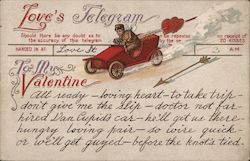 Love's Telegram
Should there be any doubt as to the accuracy of this telegram
be repeated by the
on receipt of
20 KISSES
HANDED IN AT Love St A.M.
To My
Valentine
All ready - loving heart - to take trip
don't give me the slip - doctor not far
hired Dan Cupid's car - he'll get us there
hungry loving pair - so wire quick
or we'll get guyed - before the knot's tied.